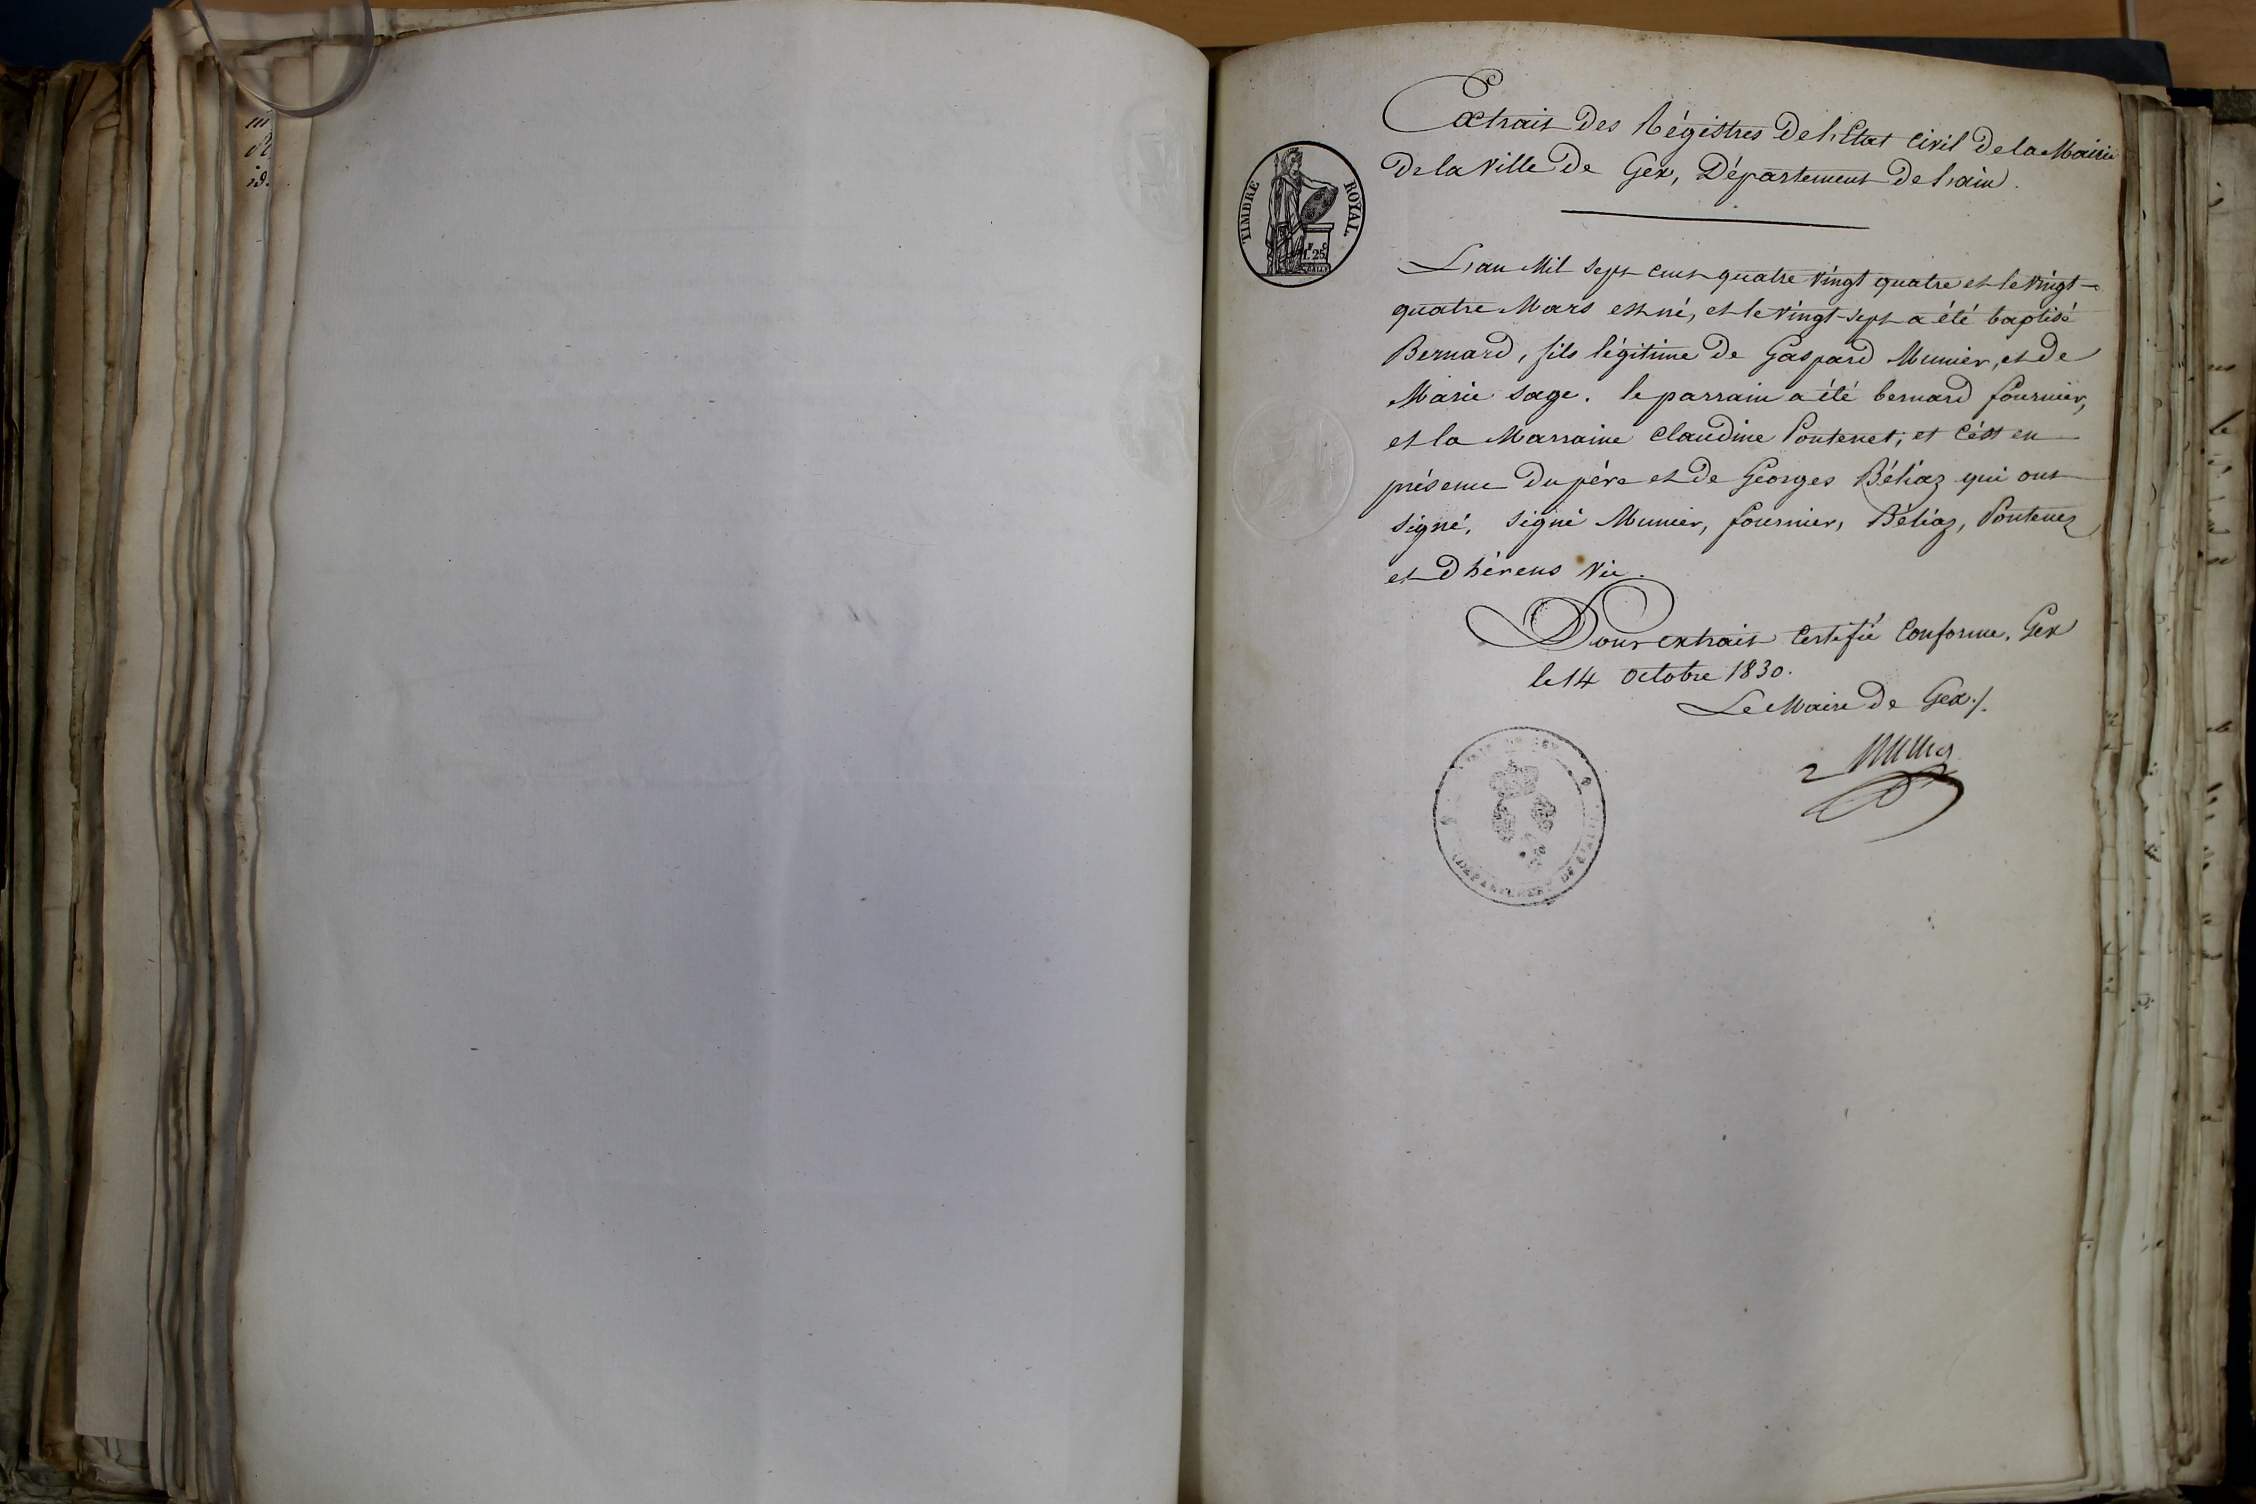 Extrait des Régistres de l'Etat civil de la Mairie
de la Ville de Gex, Département de l'ain.
TIMBRE ROYAL.
L'an Mil sept cent quatre vingt quatre et le vingt-
quatre Mars est né, et le vingt-sept a été baptisé
Bernard, fils légitime de Gaspard Munier, et de
Marie Sage. le parrain a été bernard fournier,
et la Marraine Claudine Pontenet, et c'ést en
présence du père et de Georges Béliaz qui ont
signé. signé Munier, fournier, Béliaz, Pontenez
et Dhérens Vic.
Pour extrait certifié conforme. Gex
le 14 octobre 1830.
Le Maire de Gex ./.